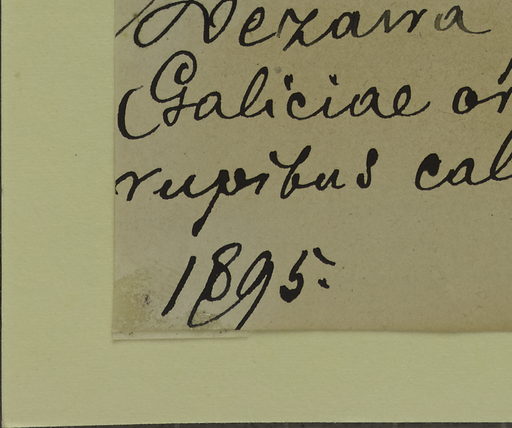 Dezawa
Galiciae or
rupibus cal
1895.